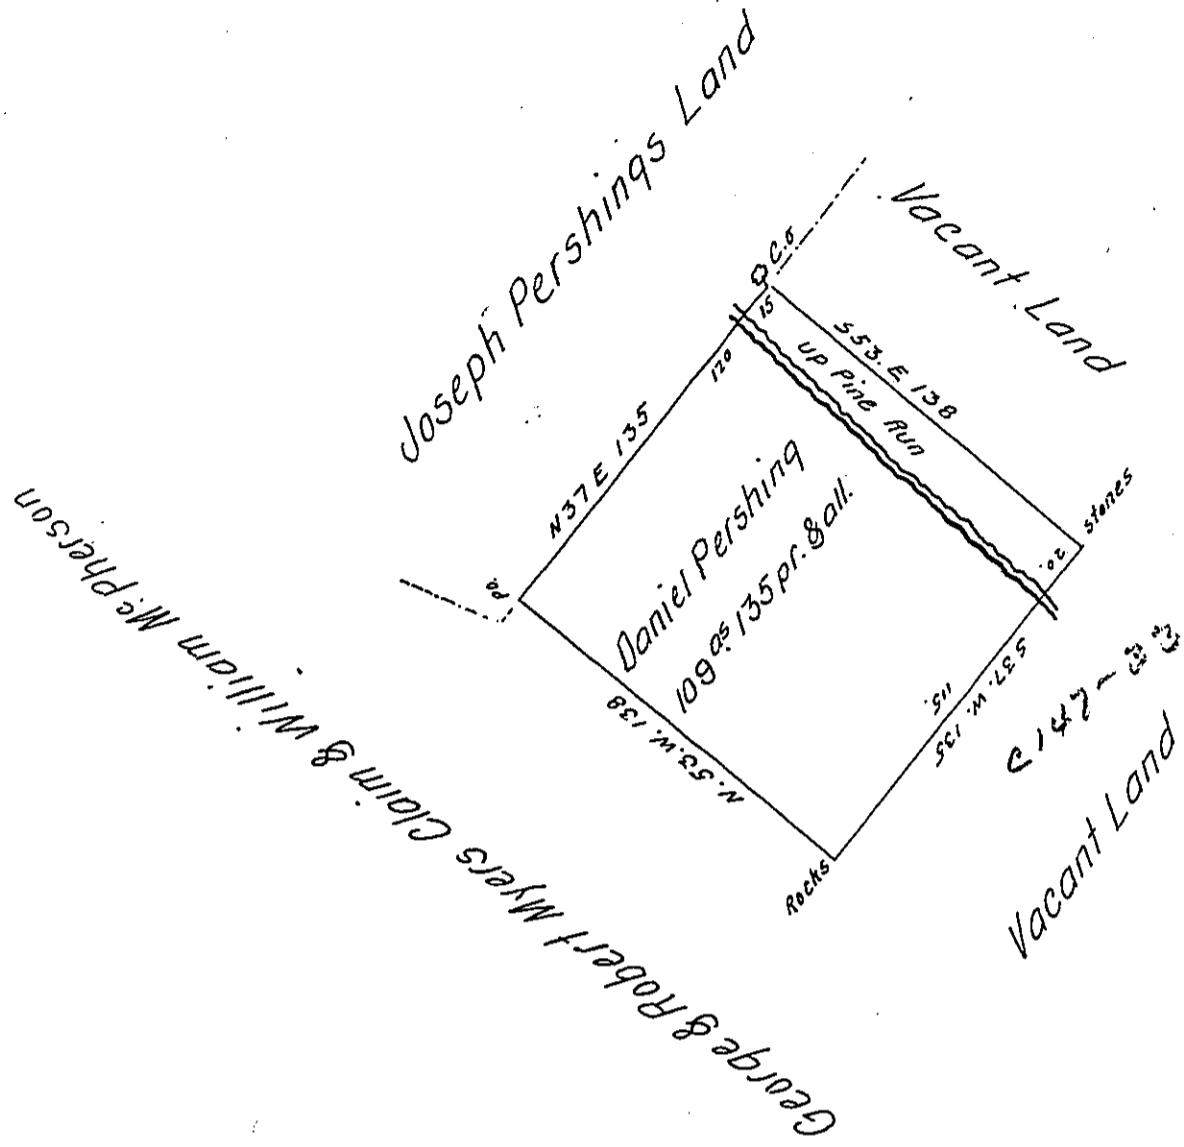 Joseph Pershings Land
Vacant Land
C.O
15
120
S53.E 138
up Pine Run
N37E 135
Po.
Daniel Pershing
109 as. 135 pr. & all.
stones
20.
S 37. W. 135
115.
N. 53. W. 138
Rocks
C147-
Vacant Land
George & Robert Myers Claim & William Mc.Pherson